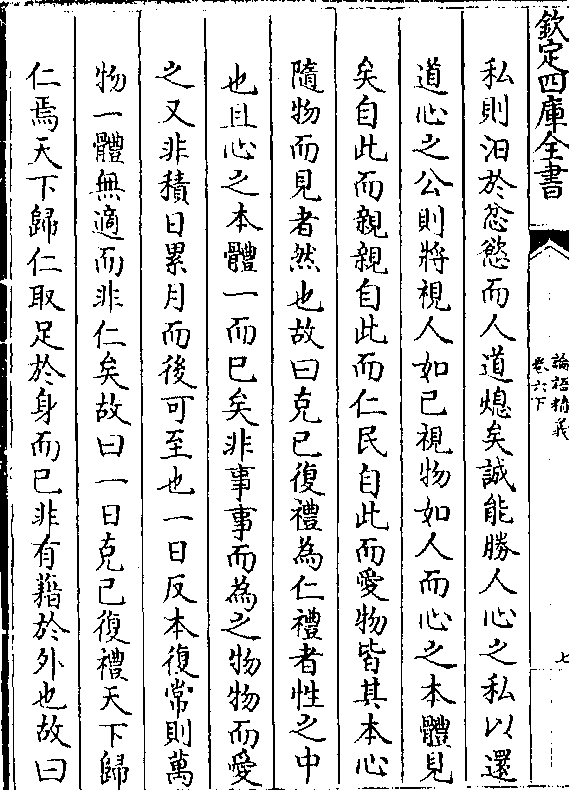 欽定四庫全書
論語精義
卷六下
七
私則汨於忿慾而人道熄矣誠能勝人心之私以還
道心之公則將視人如已視物如人而心之本體見
矣自此而親親自此而仁民自此而愛物皆其本心
隨物而見者然也故曰克已復禮為仁禮者性之中
也且心之本體一而已矣非事事而為之物物而愛
之又非積日累月而後可至也一日反本復常則萬
物一體無適而非仁矣故曰一日克已復禮天下歸
仁焉天下歸仁取足於身而已非有藉於外也故曰